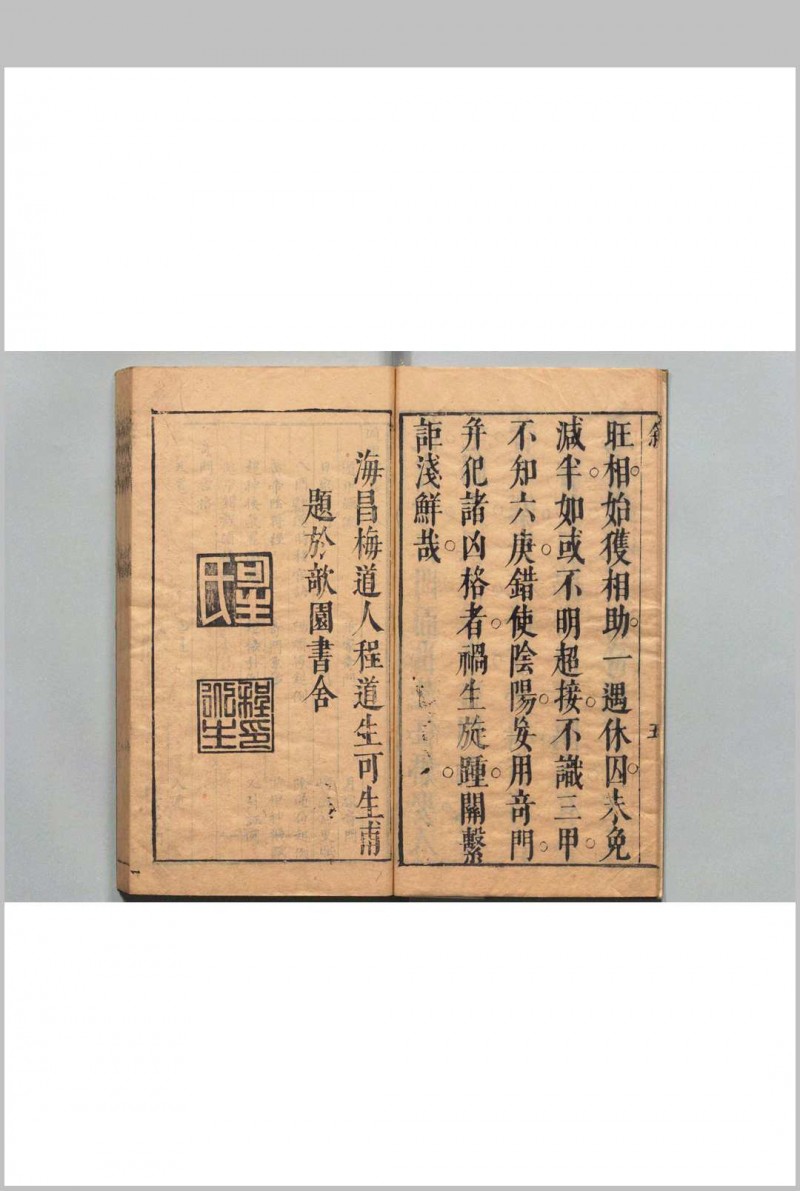 旺相。始獲相助。一遇休囚。未免
減半。如或不明超接。不識三甲。
不知六庚。錯使陰陽。妄用竒門。
幷犯諸凶格者。禍生旋踵。關繫
詎淺鮮哉。
五
海昌梅道人程道生可生甫
題於園書舍